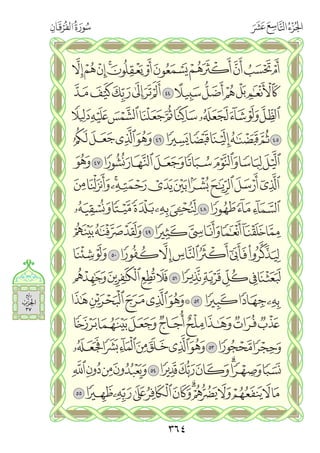 الجُزْءُ التَّاسِعَ عَشَرَ سُورَةُ الفُرْقَانِ
أَمْ تَحْسَبُ أَنَّ أَكْثَرَهُمْ يَسْمَعُونَ أَوْ يَعْقِلُونَ إِنْ هُمْ إِلَّا
كَالْأَنْعَامِ بَلْ هُمْ أَضَلُّ سَبِيلًا ٤٤ أَلَمْ تَرَ إِلَىٰ رَبِّكَ كَيْفَ مَدَّ
الظِّلَّ وَلَوْ شَاءَ لَجَعَلَهُ سَاكِنًا ثُمَّ جَعَلْنَا الشَّمْسَ عَلَيْهِ دَلِيلًا
٤٥ ثُمَّ قَبَضْنَاهُ إِلَيْنَا قَبْضًا يَسِيرًا ٤٦ وَهُوَ الَّذِي جَعَلَ لَكُمُ
الَّيْلَ لِبَاسًا وَالنَّوْمَ سُبَاتًا وَجَعَلَ النَّهَارَ نُشُورًا ٤٧ وَهُوَ
الَّذِي أَرْسَلَ الرِّيَاحَ بُشْرًا بَيْنَ يَدَيْ رَحْمَتِهِ وَأَنْزَلْنَا مِنَ
السَّمَاءِ مَاءً طَهُورًا ٤٨ لِنُحْيِيَ بِهِ بَلْدَةً مَيْتًا وَنُسْقِيَهُ
مِمَّا خَلَقْنَا أَنْعَامًا وَأَنَاسِيَّ كَثِيرًا ٤٩ وَلَقَدْ صَرَّفْنَاهُ بَيْنَهُمْ
لِيَذَّكَّرُوا فَأَبَىٰ أَكْثَرُ النَّاسِ إِلَّا كُفُورًا ٥٠ وَلَوْ شِئْنَا
لَبَعَثْنَا فِي كُلِّ قَرْيَةٍ نَذِيرًا ٥١ فَلَا تُطِعِ الْكَافِرِينَ وَجَاهِدْهُمْ
بِهِ جِهَادًا كَبِيرًا ٥٢ وَهُوَ الَّذِي مَرَجَ الْبَحْرَيْنِ هَٰذَا
عَذْبٌ فُرَاتٌ وَهَٰذَا مِلْحٌ أُجَاجٌ وَجَعَلَ بَيْنَهُمَا بَرْزَخًا
وَحِجْرًا مَحْجُورًا ٥٣ وَهُوَ الَّذِي خَلَقَ مِنَ الْمَاءِ بَشَرًا فَجَعَلَهُ
نَسَبًا وَصِهْرًا وَكَانَ رَبُّكَ قَدِيرًا ٥٤ وَيَعْبُدُونَ مِنْ دُونِ اللَّهِ
مَا لَا يَنْفَعُهُمْ وَلَا يَضُرُّهُمْ وَكَانَ الْكَافِرُ عَلَىٰ رَبِّهِ ظَهِيرًا ٥٥
الحزب
٣٧
٣٦٤